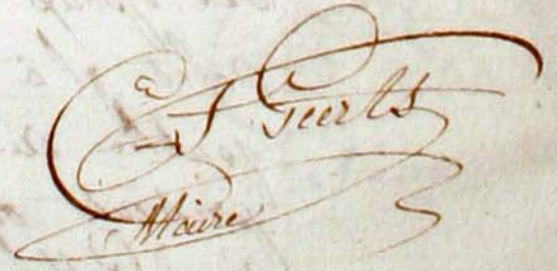 J Geerts
Maire